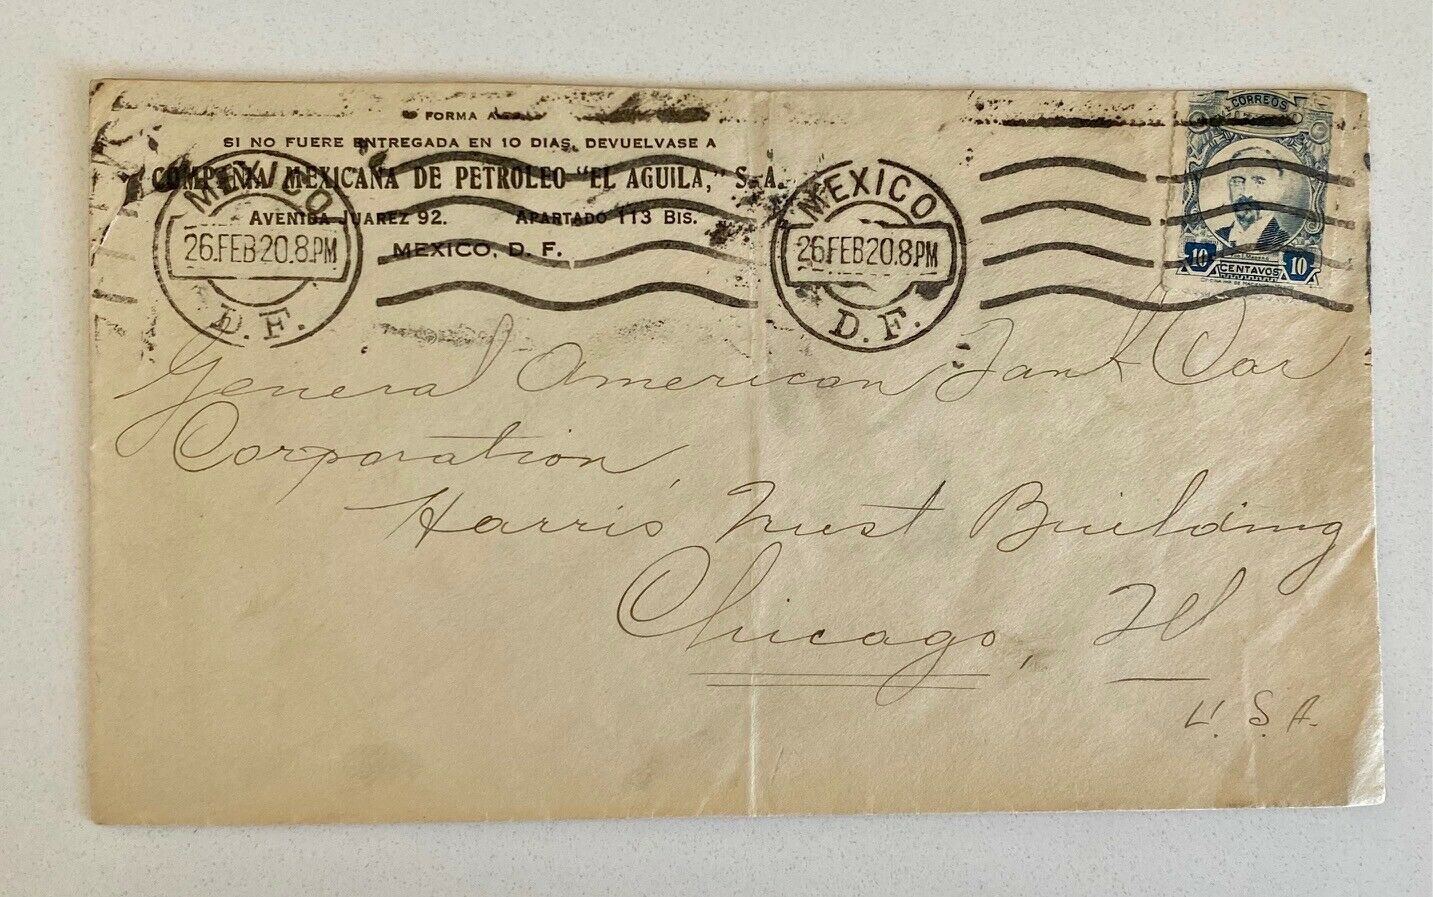 FORMA A
SI NO FUERE ENTREGADA EN 10 DIAS, DEVUELVASE A
COMPAÑIA MEXICANA DE PETROLEO "EL AGUILA," S. A.
AVENIDA JUAREZ 92. APARTADO 113 BIS.
MEXICO, D. F.
MEXICO
26.FEB20.8PM
D.F.
MEXICO
26.FEB20.8PM
D.F.
CORREOS
10 CENTAVOS 10
General American Tank Car
Corporation,
Harris Trust Building
Chicago, Ill
U.S.A.